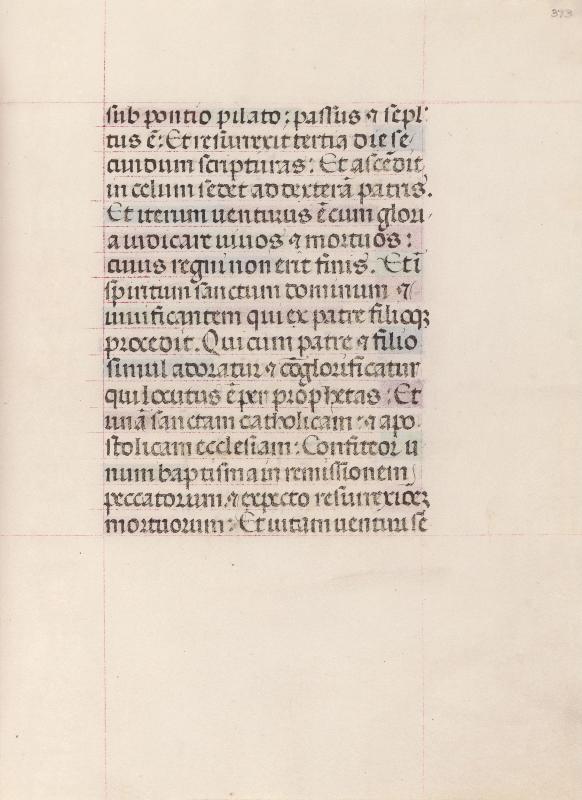 373
sub pontio pilato: passus ⁊ sepl'
tus ē: Et resurrexit tertia die se⸗
cundum scripturas: Et ascēdit
in celum sedet ad dexterā patris.
Et iterum uenturus ē cum glori⸗
a iudicare uiuos ⁊ mortuos:
cuius regni non erit finis. Et ī
spiritum sanctum dominum ⁊
uiuificantem qui ex patre filioqꝫ
procedit. Qui cum patre ⁊ filio
simul adoratur ⁊ cōglorificatur
qui locutus ē per prophetas: Et
unā sanctam catholicam: ⁊ apo
stolicam ecclesiam: Confiteor u
num baptisma in remissionem
peccatorum. ⁊ expecto resurrexiōeꝫ
mortuorum: Et uitam uenturi sē